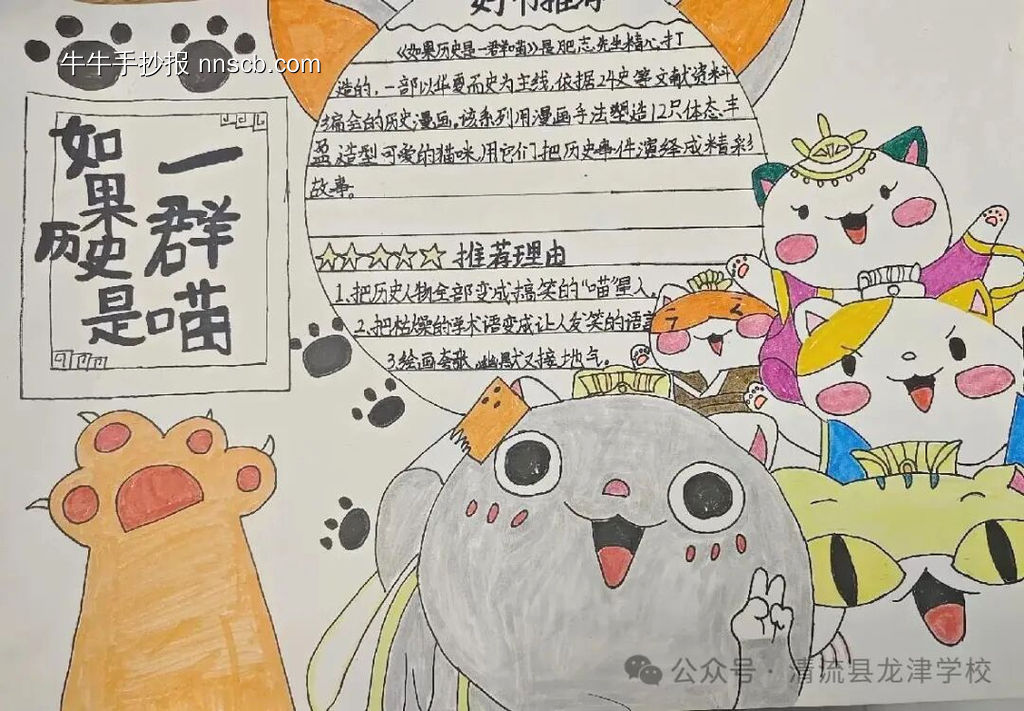 好书推荐
牛牛手抄报 nnscb.com
如果历史是
一群喵
《如果历史是一群喵》是肥志先生精心打
造的,一部以华夏历史为主线,依据24史等文献资料
编绘的历史漫画。该系列用漫画手法塑造12只体态丰
盈造型可爱的猫咪,用它们把历史事件演绎成精彩
故事。
推荐理由
1、把历史人物全部变成搞笑的“喵”星人
2、把枯燥的学术语变成让人发笑的语言
3、绘画夸张、幽默又接地气。
公众号·清流县龙津学校